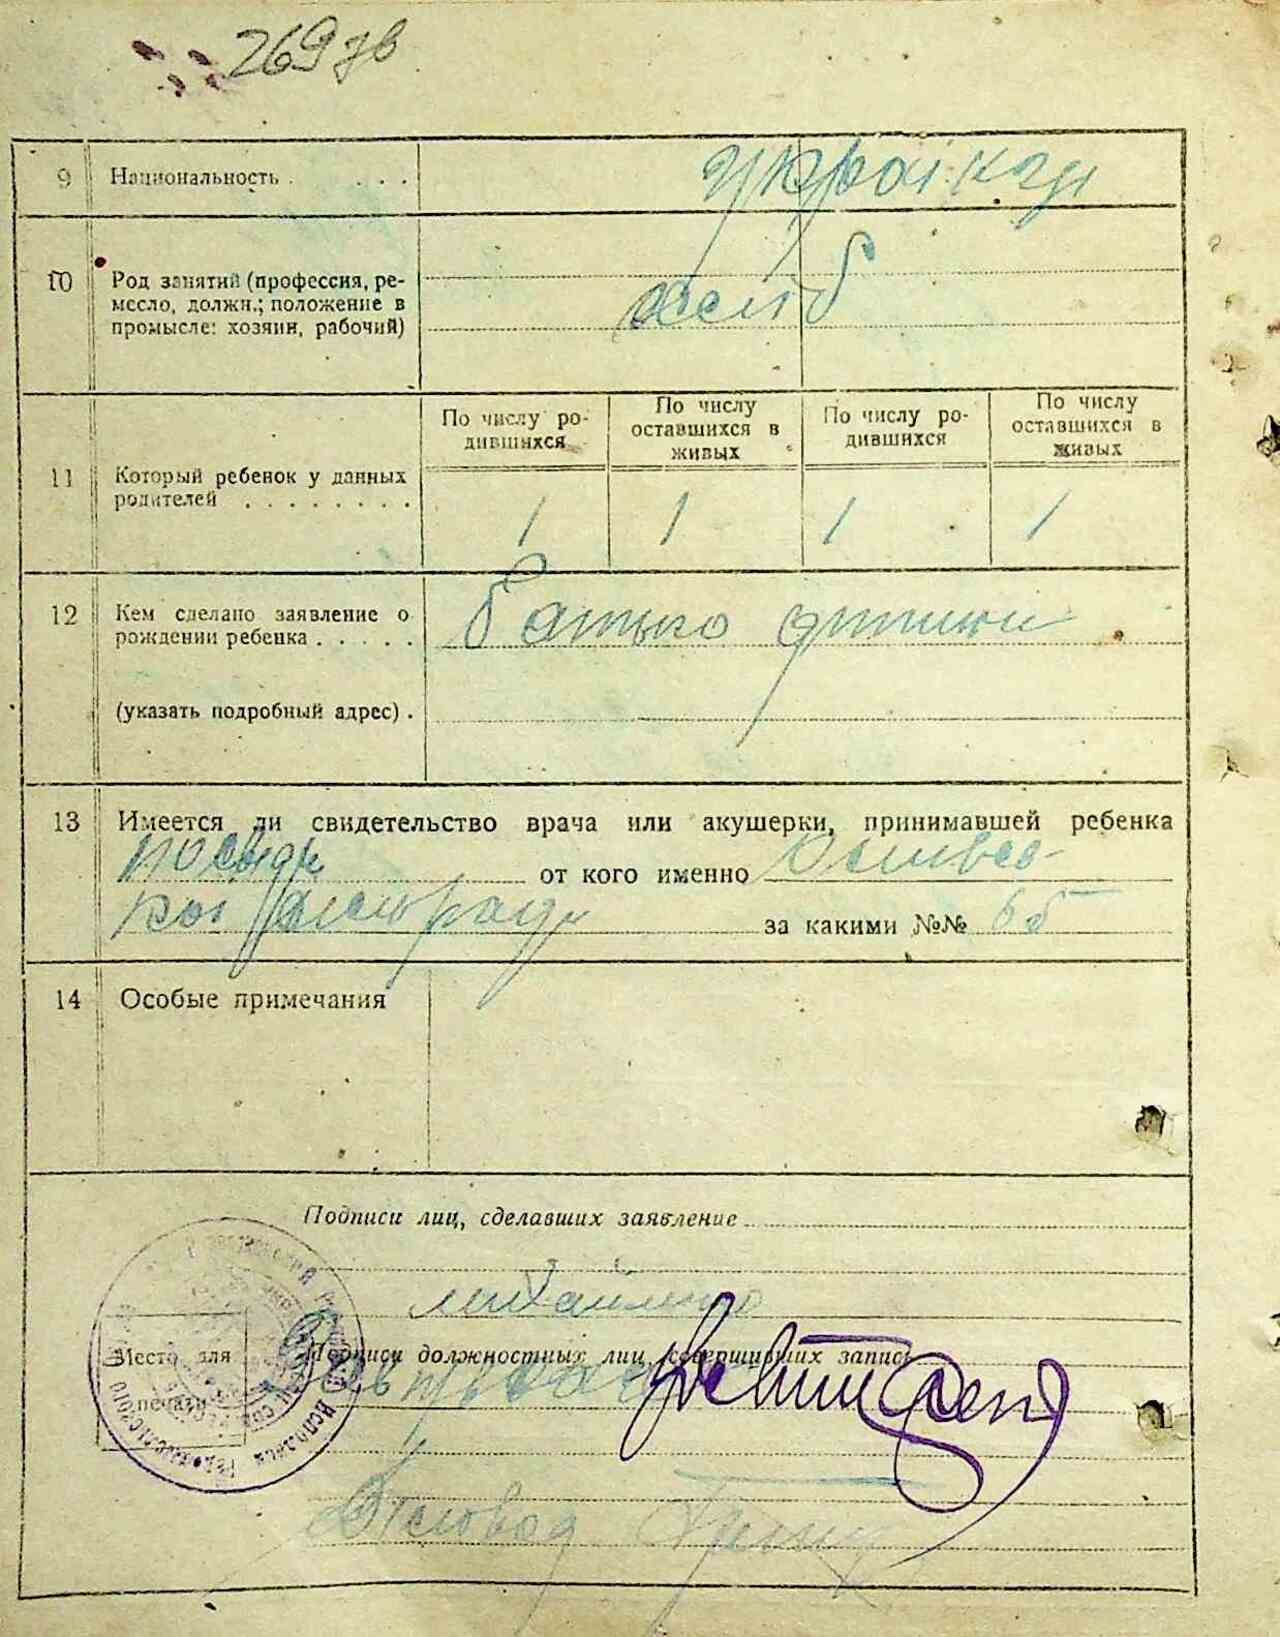 269 зв
9 Национальность . . . . українці
10 Род занятий (профессия, ре-
месло, должн.; положение в
промысле: хозяин, рабочий)
хліб
По числу ро-
дившихся
По числу
оставшихся в
живых
По числу ро-
дившихся
По числу
оставшихся в
живых
11 Который ребенок у данных
родителей . . . . . . . .
1 1 1 1
12 Кем сделано заявление о
рождении ребенка . . . . . батько дитини
(указать подробный адрес) .
13 Имеется ли свидетельство врача или акушерки, принимавшей ребенка
посвідк от кого именно
за какими №№ 65
14 Особые примечания
Подписи лиц, сделавших заявление
Михайленко
Место для
печати
Подписи должностных лиц, совершивших запись
Зав
Діловод